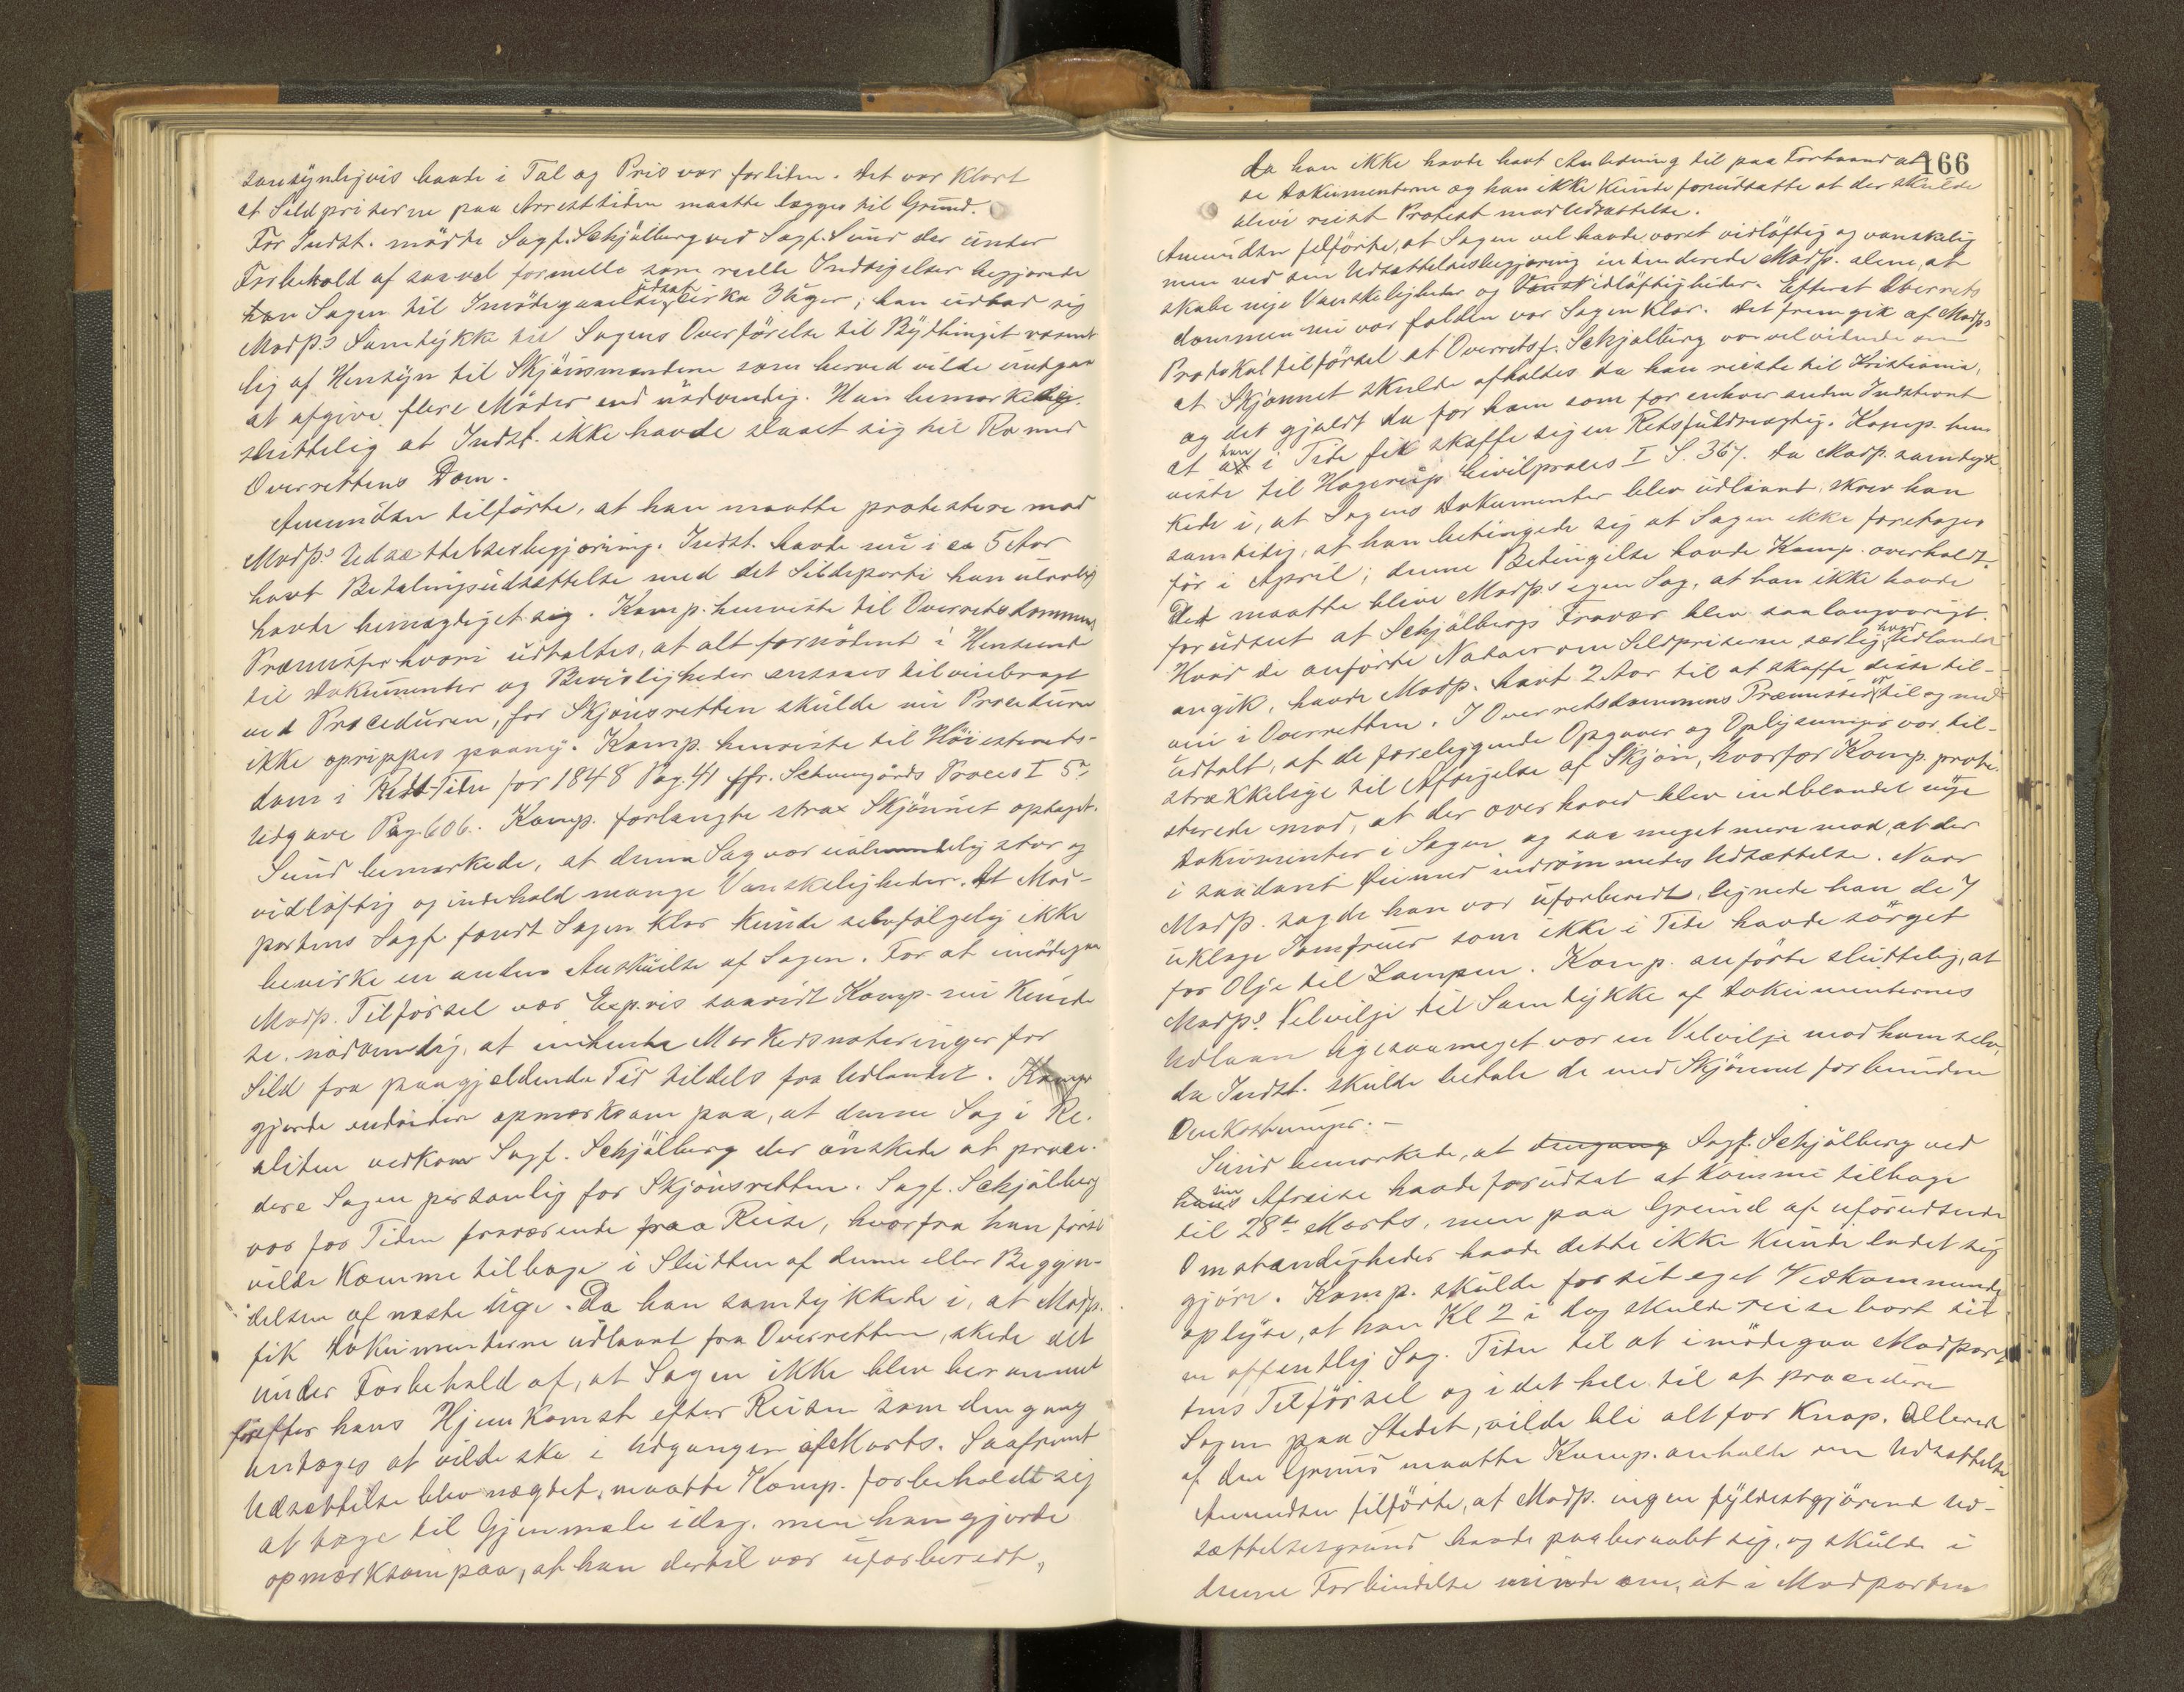 sansynligvis havde i Tal og Pris var forliden. Det var klart
at Sildpriserne paa Arresttiden maatte lægges til Grund.
For Indst. mödte Sagf. Schjölberg ved Sagf. Sund der under
Forbehold af saavel formelle som reelle Indsigelser begjærede
Sagen til Imödegaaelse udsat cirka 3 Uger; han udbad sig
Modp.s Samtykke til Sagens Overförelse til Bythinget væsent
lig af Hensyn til Skjönsmændene som herved vilde undgaa
at afgive flere Möder end nödvendig. Han bemærkede
sluttelig at Indst. ikke havde slaaet sig til Ro med
Overrettens Dom.
Amundsen tilförte, at han maatte protestere mod
Modp.s Udsættelsesbegjæring. Indst. havde nu i ca 5 Aar
havt Betalingsudsættelse med det Sildeparti han ulovlig
havde bemægtiget sig. Komp. henviste til Overretsdommens
Præmisser hvori udtaltes, at alt fornödent i Henseende
til Dokumenter og Bevisligheder ansaaes tilveiebragt
ved Proceduren, for Skjönsretten skulde nu Proceduren
ikke oprippes paany. Komp. henviste til Höiesterets-
dom i Rett-Tiden for 1848 Pag. 41 jfr. Schweigårds Proces I 5te
Udgave Pag. 606. Komp. forlangte strax Skjönnet optaget.
Sund bemærkede, at denne Sag var ualmindelig stor og
vidlöftig og indehold mange Vanskeligheder. At Mod-
partens Sagf. fandt Sagen klar kunde selvfölgelig ikke
bevirke en anden Anskuelse af Sagen. For at imödegaa
Modp. Tilförsel var Exp.vis saavidt Komp. nu kunde
se, nödvendig, at indhente Markedsnoteringer for
Sild fra paagjeldende Tid tildels fra Udlandet. Komp.
gjorde endvidere opmærksom paa, at denne Sag i Re-
aliteten vedkom Sagf. Schjölberg der önskede at proce-
dere Sagen personlig for Skjönsretten. Sagf. Schjölberg
var for Tiden fraværende paa Reise, hvorfra han först
vilde komme tilbage i Slutten af denne eller Begyn-
delsen af næste Uge. Da han samtykkede i, at Modp.
fik Dokumenterne udlaant fra Overretten, skede det
under Forbehold af, at Sagen ikke blev berammet
för efter hans Hjemkomst efter Reisen som dengang
antoges at vilde ske i Udgangen af Marts. Saafremt
Udsættelse blev nægtet, maatte Komp. forbeholdt sig
at tage til Gjenmæle idag, men han gjorde
opmærksom paa, at han dertil var uforberedt,
166
da han ikke havde havt Anledning til paa Forhaand at
se Dokumenterne og han ikke kunde forudsætte at der skulde
blive reist Protest mod Udsættelse.
Amundsen tilförte, at Sagen vel havde været vidlöftig og vanskelig
men ved sin Udsættelsesbegjæring intenderede Modp. alene, at
skabe nye Vanskeligheder og Vidlöftigheder. Efterat Overrets
dommen nu var falden var Sagen klar. Det fremgik af Modp.s
Protokoltilförsel at Overretsf. Schjölberg var vel vidende om
at Skjönnet skulde afholdes da han reiste til Kristiania,
og det gjaldt da for ham som for enhver anden Indstevnt
at han i Tide fik skaffe sig en Retsfuldmægtig. Komp. hen
viste til Hagerup Civilproces I S. 367. Da Modp. samtyk
kede i, at Sagens Dokumenter blev udlaant, skrev han
samtidig, at han betingede sig at Sagen ikke foretages
för i April; denne Betingelse havde Komp. overholdt.
Det maatte blive Modp.s egen Sag, at han ikke havde
forudseet at Schjölbergs Fravær blev saa langvarigt.
Hvad de anförte Notaer om Sildpriserne særlig hvad Udlandet
angik, havde Modp. havt 2 Aar til at skaffe disse til-
veie i Overretten. I Overretsdommens Præmisser er til og med
udtalt, at de foreliggende Opgaver og Oplysninger var til-
strækkelige til Afsigelse af Skjön, hvorfor Komp. prote-
sterede mod, at der overhoved blev indblandet nye
Dokumenter i Sagen og saa meget mere mod, at der
i saadant Öiemed indrömmedes Udsættelse. Naar
Modp. sagde han var uforberedt, lignede han de 7
ukloge Jomfruer som ikke i Tide havde sörget
for Olje til Lampen. Komp. anförte sluttelig, at
Modp.s Velvilje til Samtykke af Dokumenternes
Udlaan ligesaameget var en Velvilje mod ham selv,
da Indst. skulde betale de med Skjönnet forbundne
Omkostninger. –
Sund bemærkede, at dengang Sagf. Schjölberg ved
sin Afreise havde forudsat at komme tilbage
til 28de Marts, men paa Grund af uforudseede
Omstændigheder havde dette ikke kunde ladet sig
gjöre. Komp. skulde for sit eget Vedkommende
oplyse, at han Kl 2 i Dag skulde reise bort til
en offentlig Sag. Tiden til at imödegaa Modpar-
tens Tilförsel og i det hele til at procedere
Sagen paa Stedet, vilde bli alt for knap. Allerede
af den Grund maatte Komp. anholde om Udsættelse
Amundsen tilförte, at Modp. ingen fyldestgjörende Ud-
sættelsesgrund havde paaberaabt sig, og skulde i
denne Forbindelse minde om, at i Modparten